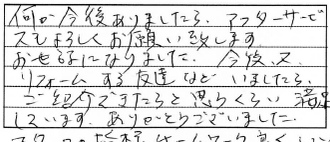 何か今後ありましたら、アフターサービ
スもよろしくお願い致します
お世話になりました。今後又、
リフォームする友達などいましたら、
ご紹介できたらと思うくらい満足
しています。ありがとうございました。